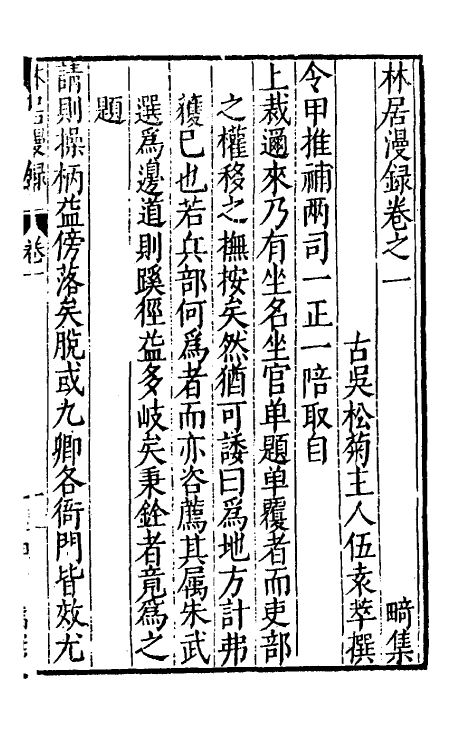 林居漫録卷之一　　　　　畸集
古吳松菊主人伍袁萃撰
令甲推補兩司一正一陪取自
上裁邇來乃有坐名坐官单題单覆者而吏部
之權移之撫按矣然猶可諉曰爲地方計弗
獲已也若兵部何爲者而亦咨薦其属朱武
選爲邊道則蹊徑益多岐矣秉銓者竟爲之
題
請則操柄益傍落矣脫或九卿各衙門皆效尤
林居漫録　卷一